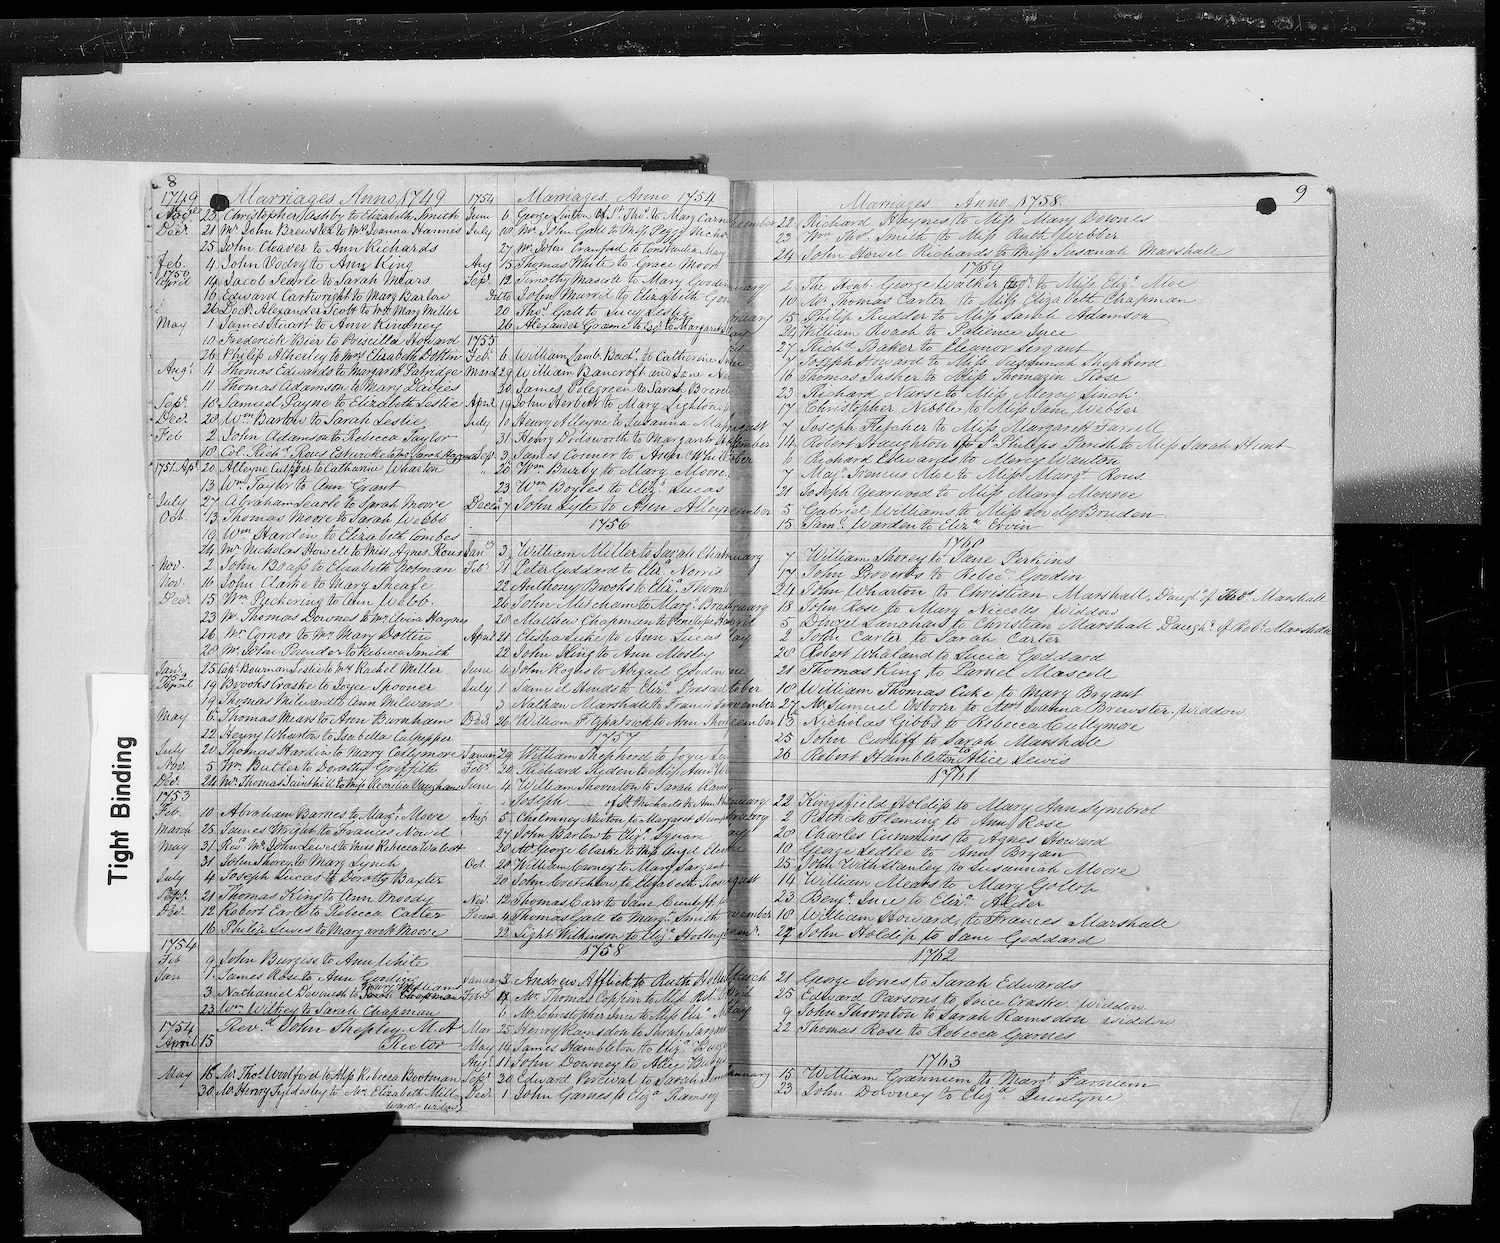 8
1749 Marriages Anno 1749
23 Christopher Clashby to Elizabeth Smith
Decr. 21 Mr John Brewster to Mrs Joanna Hannes
25 John Chaver to Ann Richards
Feb. 4 John Vodry to Ann King
1750
April 14 Jacob Searle to Sarah Mears
16 Edward Cartwright to Mary Barlow
26 Doct. Alexander Scott to Mrs Mary Miller
May 1 James Stuart to Anne Kindney
10 Frederick Bier to Priscilla Howard
26 Philip Atherley to Mrs Elizabeth Dottin
Augt. 4 Thomas Edwards to Margaret Patridge
11 Thomas Adamson to Mary Davies
Septr. 10 Samuel Payne to Elizabeth Leslie
Decr. 20 Wm Barlow to Sarah Leslie
Feb 2 John Adamson to Rebecca Taylor
18 Col. Richd. Rous Estwicke to Mrs Sarah Haynes
1751 Apl. 20 Alleyne Culpper to Catharine Wharton
13 Wm Taylor to Ann Grant
July 27 Abraham Searle to Sarah Moore
Oct. 13 Thomas Moore to Sarah Webb
19 Wm Harden to Elizabeth Combes
24 Mr Nicholas Howell to Miss Agnes Rous
Nov. 2 John Boass to Elizabeth Norman
Nov. 10 John Clarke to Mary Sheafe
Decr. 15 Wm Pickering to Ann Webb
23 Mr Thomas Downes to Mrs Anna Haynes
26 Mr Cornor to Mrs Mary Dottin
28 Mr John Pounder to Rebecca Smith
1752
25 Capt Bowman Leslie to Mrs Rachel Miller
April 14 Brooks Craske to Joyce Spooner
19 Thomas Milward to Ann Milward
May 6 Thomas Mears to Ann Burnham
22 Henry Wharton to Isabella Culpepper
July 20 Thomas Hardin to Mary Collymore
Nov. 5 Wm Butler to Dorothy Griffith
Decr. 24 Mr Thomas Sainthill to Miss Cecilia Vaughan
1753
Feb. 10 Abraham Barnes to Magt. Moore
March 25 James Wright to Frances Nowel
May 31 Revd. Mr John Lewis to Miss Rebecca Walcott
31 John Shorey to Mary Lynch
July 4 Joseph Lucas to Dorothy Baxter
Sepr. 21 Thomas King to Ann Moody
Decr. 12 Robert Earle to Rebecca Carter
16 Philip Lewis to Margaret Moore
1754
Feb 9 John Burgiss to Ann White
Jan 1 James Rous to Ann Gosling
3 Nathaniel Devenish to Mary Williams
23 Wm Withey to Sarah Chapman
1754 Revd. John Shepley M.A
April 15 Rector
May 16 Mr Thos. Woolford to Miss Rebecca Bootman
30 Mr Henry Tyldesley to Mrs Elizabeth Mill-
ward widow
1754 Marriages Anno 1754
June 6 George Linton of St. Thos. to Mary Carn
July 18 Mr John Gall to Miss Peggy Nicho
27 Mr John Crawford to Constantia May
Aug 15 Thomas White to Grace Moor
Sepr. 12 Timothy Mascoll to Mary Good
Ditto John Murrel to Elizabeth Gor
20 Thos. Gall to Lucy Leslie
26 Alexander Graeme Esqr. to Margaret
1755
Feb. 6 William Lamb Bachr. to Catherine
March 29 William Bancroft and Jane
30 James Pelegreen to Sarah
April 19 John Herbert to Mary Lighton
July 10 Henry Alleyne to Susanna
31 Henry Dodsworth to Margaret
Sepr. 3 James Cornor to Ann Whi
20 Wm Bursby to Mary Moore
23 Wm Boyles to Eliza. Lucas
Decr. 7 John Lyte to Ann Alley
1756
Jany. 3 William Miller to Sarah
Feb. 21 Peter Goddard to Eliza. Norris
22 Anthony Brooks to Eliza. Thorn
24 John Mitcham to Margt.
28 Matthew Chapman to Penelope
April 21 Elisha Luke to Ann Lucas
22 John King to Ann Mosley
June 4 John Rogers to Abigail
July 1 Samuel Hinds to Eliza.
3 Nathan Marshall to Francis
Decr. 26 William Fitzpatrick to Ann
1757
January 29 William Shepherd to Joyce
Feb. 20 Richard Risden to Miss Ann
June 4 William Thornton to Sarah
Joseph of St Michaels to Ann
Aug. 5 Cholmney Newton to Margaret
27 John Barlow to Eliza. Squan
28 Mr George Clarke to Miss Angel
Oct. 20 William Cowney to Mary Sargant
20 John Cretchlow to Elizabeth
Nov. 12 Thomas Carr to Jane Cuntiff
4 Thomas Gall to Margt. Smith
22 Light Wilkinson to Eliza.
1758
January 3 Andrew Afflick to Ruth
Feby. Mr Thomas Coppin to Miss
6 Mr Christopher Ince to Miss Eliza.
Mar 25 Henry Ramsden to Sarah
May 14 James Hambleton to Eliza.
Augt. 11 John Downey to Alice
Sept. 20 Edward Percival to Sarah
Decr. 1 John Garnes to Eliza. Ramsey
9
Marriages Anno 1758
22 Richard Haynes to Miss Mary Downes
23 Wm Thos. Smith to Miss Ruth Webber
24 John Howel Richards to Miss Susanah Marshall
1759
2 The Honb. George Walker Esqr. to Miss Eliza. Moe
10 Mr Thomas Carter to Miss Elizabeth Chapman
15 Philip Kidder to Miss Sarah Adamson
24 William Roach to Patience Ince
27 Richd. Baker to Eleanor Sergant
7 Joseph Howard to Miss Hannah Shepherd
16 Thomas Tasker to Miss Thomazin Rose
23 Richard Nurse to Miss Mercy Linch
17 Christopher Nibble to Miss Jane Webber
7 Joseph Fletcher to Miss Margarett Farrell
14 Robert Haughton of St. Philips Parish to Miss Sarah Hunt
6 Richard Edwards to Mercy Wanton
7 Majr. Irencus Moe to Miss Margt. Rous
21 Joseph Yearwood to Miss Mary Monroe
5 Gabriel Williams to Miss Dorothy Bruden
15 Saml. Warden to Eliza. Ervin
1760
7 William Shorey to Jane Perkins
17 John Proverbs to Rebec. Goodin
24 John Wharton to Christian Marshall, Daugr. of Thos. Marshall
18 John Rose to Mary Niccols Widdow
5 Dingel Lanahan to Christian Marshall Daughr. of Robt. Marshall
2 John Carter to Sarah Carter
28 Robert Whaland to Lucia Goddard
21 Thomas King to Parnel Mascoll
18 William Thomas Cake to Mary Bryant
27 Mr Samuel Osborn to Mrs Joanna Brewster, Widdow
13 Nicholas Gibbs to Rebecca Cullymore
25 John Cunliff to Sarah Marshall
26 Robert Hambleton to Alice Lewis
1761
22 Kingsfield Holdip to Mary Ann Symbrol
2 Fleming to Ann Rose
28 Charles Cummins to Agnes Howard
10 George Ledlee to Ann Bryan
25 John With Stanley to Susannah Moore
14 William Mears to Mary Gollop
23 Benj. Ince to Eliza. Alder
18 William Howard to Frances Marshall
27 John Holdip to Jane Goddard
1762
21 George Jones to Sarah Edwards
25 Edward Parsons to Joice Craske, Widdow
9 John Thornton to Sarah Ramsdon Widdow
22 Thomas Rose to Rebecca Garnes
1763
15 William Grannum to Margt. Farnum
23 John Downey to Eliza. Quintyne
Tight Binding